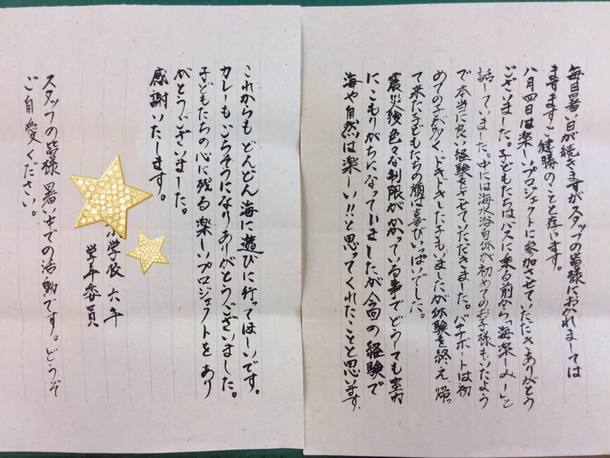 毎日暑い日が続きますがスタッフの皆様におかれましては
ますますご健勝のことと存じます。
八月四日は楽しいプロジェクトに参加させていただきありがとう
ございました。子どもたちはバスに乗る前から「海楽しみー」と
話していました。中には海水浴自体が初めてのお子様もいたよう
で本当に良い経験をさせていただきました。バナナボートは初
めての子が多くドキドキした子もいましたが体験を終え帰っ
て来た子どもたちの顔は喜びいっぱいでした。
震災後色々な制限がかかっている事でどうしても室内
にこもりがちになっていましたが今回の経験で
海や自然は楽しい!!と思ってくれたことと思います。
これからもどんどん海に遊びに行ってほしいです。
カレーもごちそうになりありがとうございました。
子どもたちの心に残る楽しいプロジェクトをあり
がとうございました。
感謝いたします。
小学校六年
学年委員
スタッフの皆様暑い中での活動です。どうぞ
ご自愛ください。